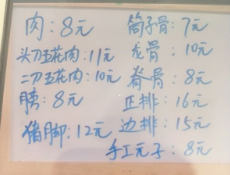 肉：8元
头刀五花肉：11元
二刀五花肉：10元
膀：8元
猪脚：12元
筒子骨：7元
龙骨：10元
脊骨：8元
正排：16元
边排：15元
手工元子：8元